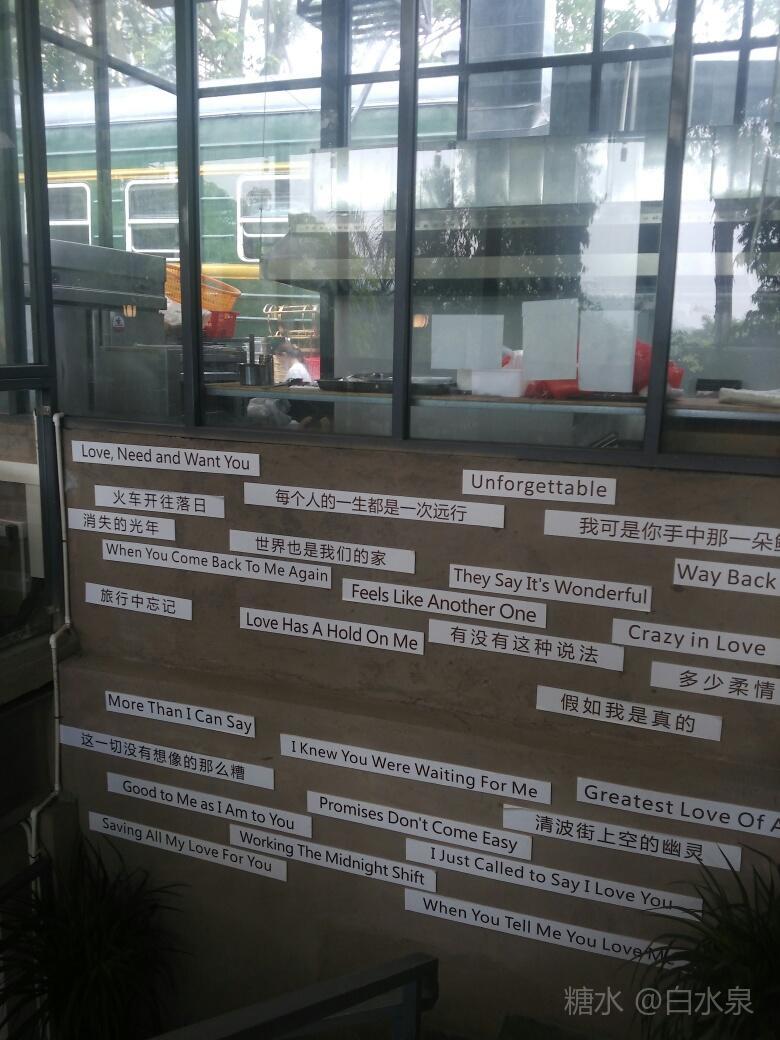 Love, Need and Want You
Unforgettable
火车开往落日
每个人的一生都是一次远行
我可是你手中那一朵
消失的光年
世界也是我们的家
When You Come Back To Me Again
They Say It's Wonderful
Way Back
旅行中忘记
Feels Like Another One
Love Has A Hold On Me
有没有这种说法
Crazy in Love
多少柔情
假如我是真的
More Than I Can Say
这一切没有想像的那么糟
I Knew You Were Waiting For Me
Greatest Love Of A
Good to Me as I Am to You
Promises Don't Come Easy
清波街上空的幽灵
Saving All My Love For You
Working The Midnight Shift
I Just Called to Say I Love You
When You Tell Me You Love Me
糖水 @白水泉